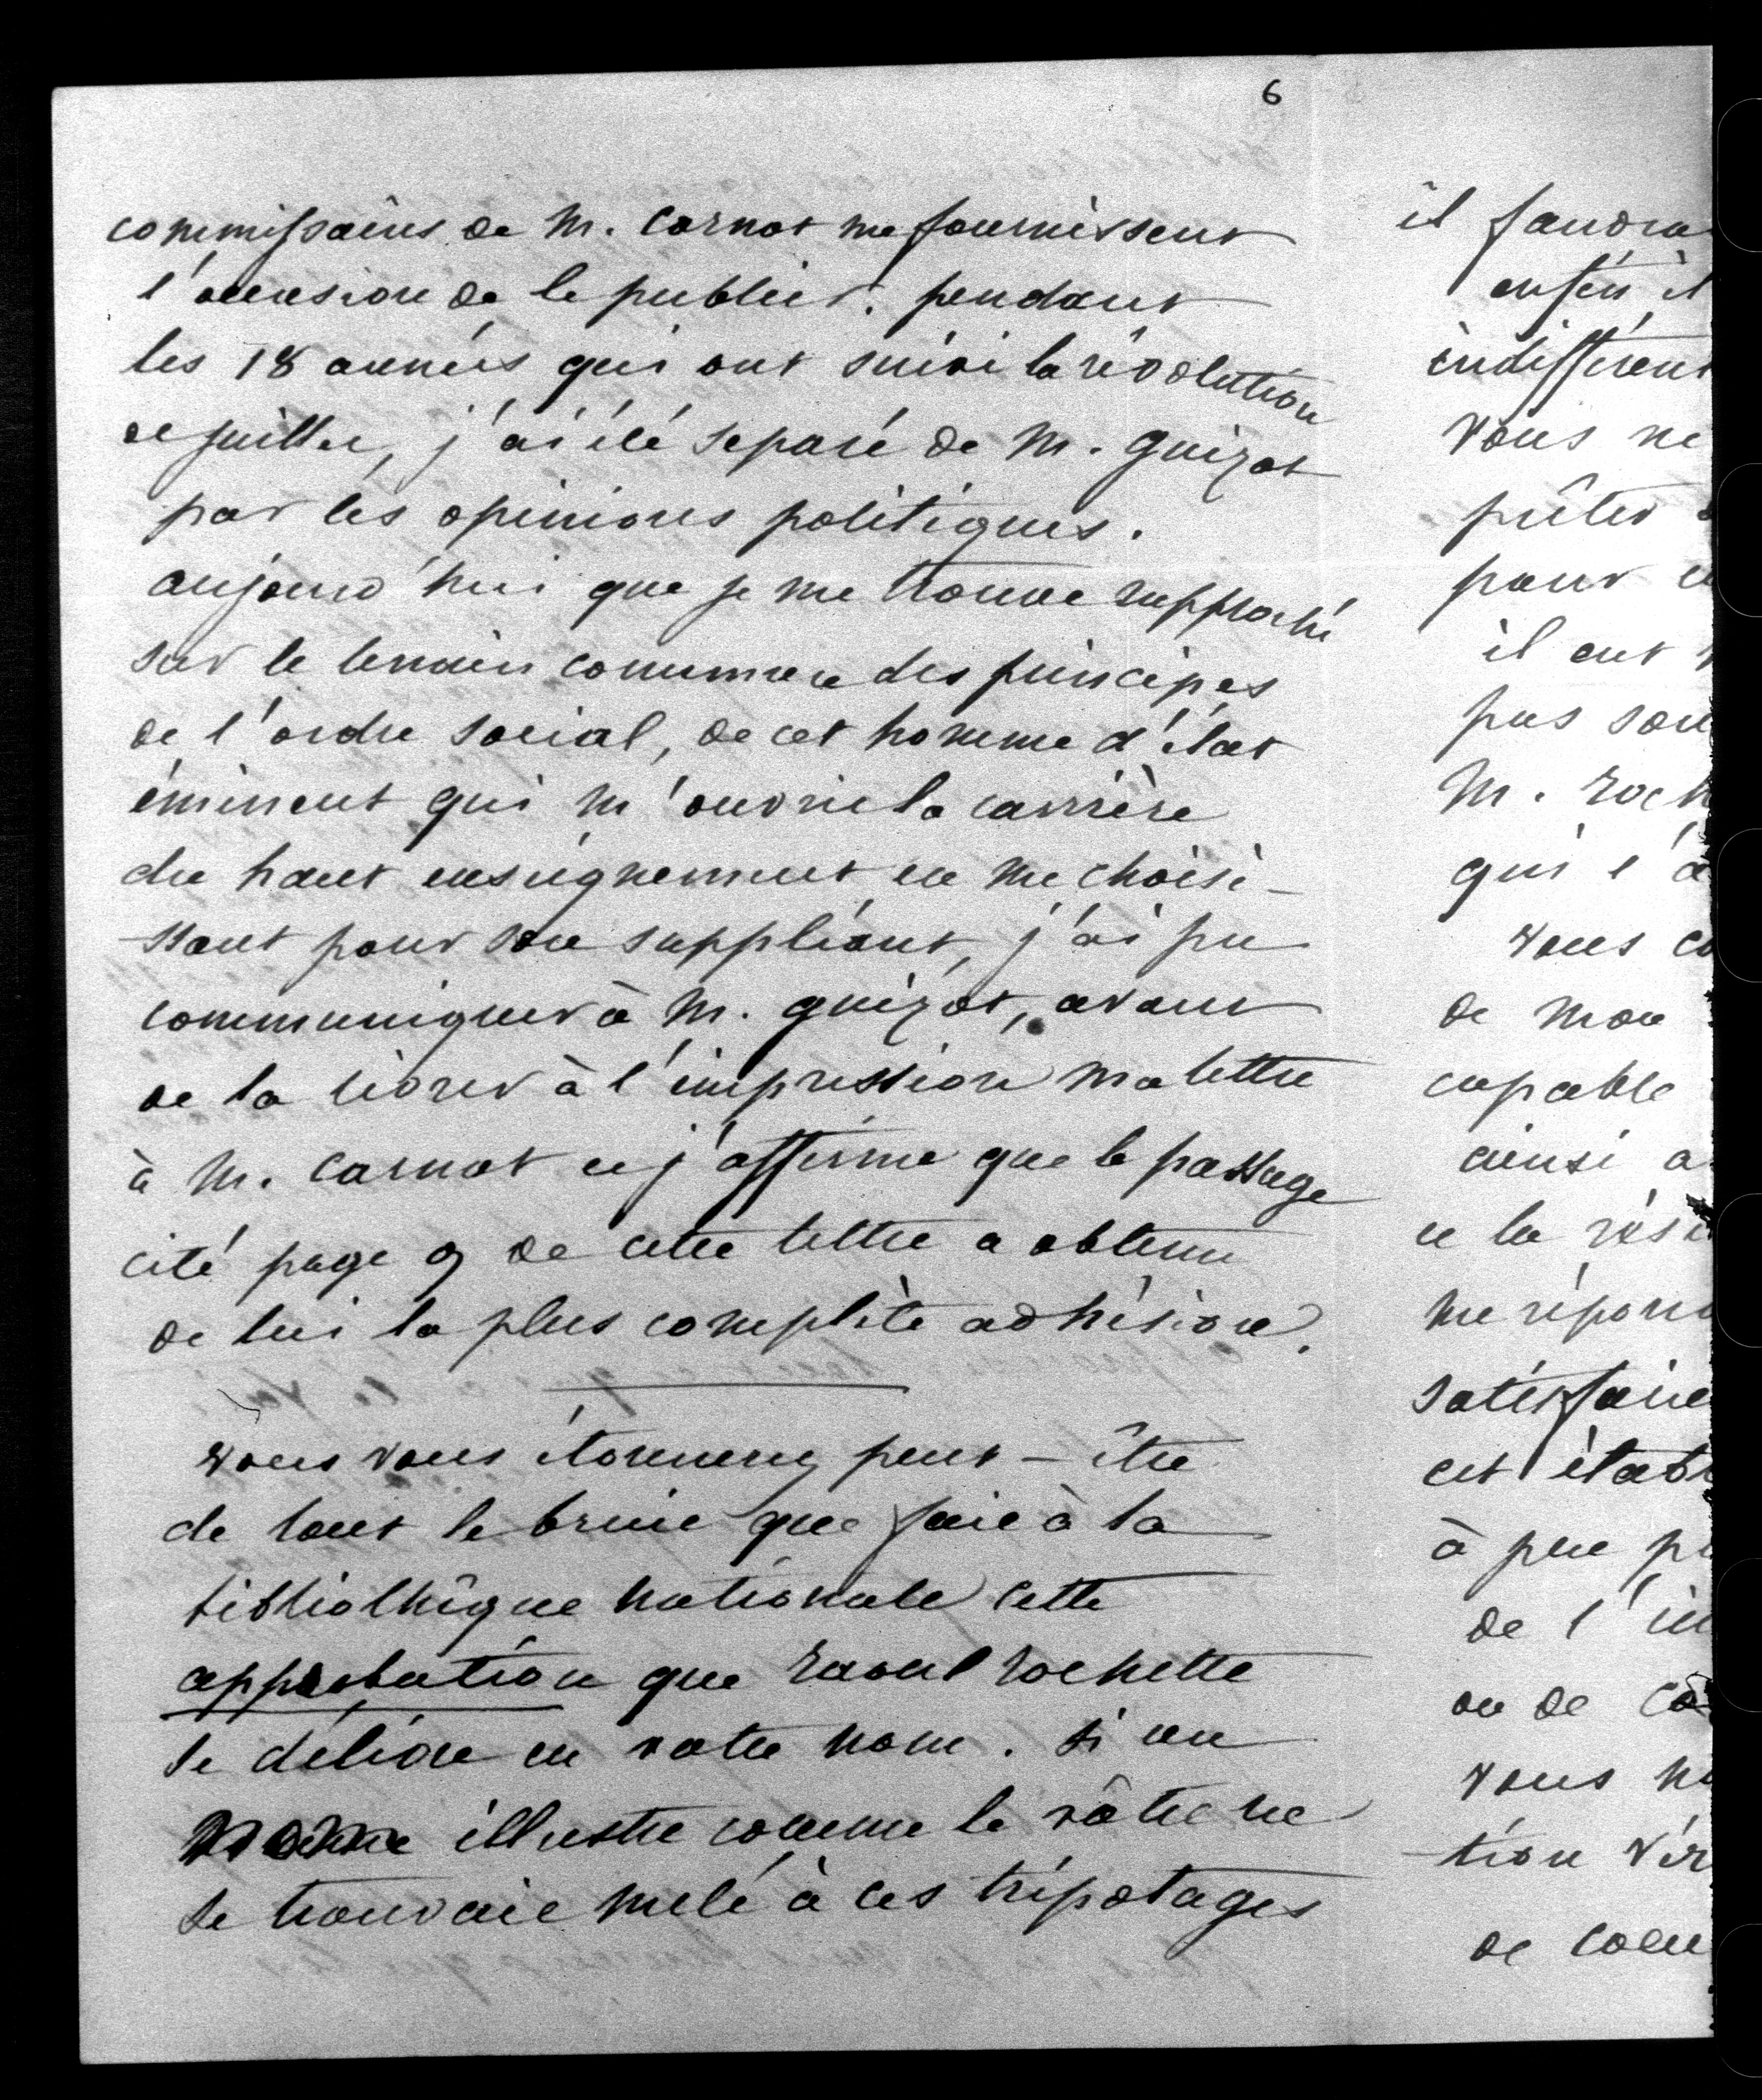 6
commissaires de M. Carnot me fournissent
l'occasion de le publier. pendant
les 18 années qui ont suivi la révolution
de juillet, j'ai été separé de M. Guizot
par les opinions politiques.
aujourd'hui que je me trouve rapproché
sur le terrain commun des principes
de l'ordre social, de cet homme d'état
éminent qui m'ouvrit la carrière
du haut enseignement en me choisi-
ssant pour son suppléant, j'ai pu
communiquer à M. Guizot, avant
de la livrer à l'impression ma lettre
à M. Carnot et j'affirme que le passage
cité page 9 de cette lettre a obtenu
de lui la plus complète adhésion.
vous vous étonnerez peut-être
de tout le bruit que fait à la
bibliothèque nationale cette
approbation que Raoul Rochette
se délivre en votre nom. Si un
nom illustre comme le vôtre ne
se trouvait mêlé à ces tripotages
il faudra
enfin il
indifférent
vous ne
prêter
pour
il eut
pas son
M. Roch
qui l'a
vous co
de mon
capable
ainsi a
et la rés
me répon
satisfaire
cet établ
à peu pr
de l'in
ou de ca
vous
tion vér
de coeu